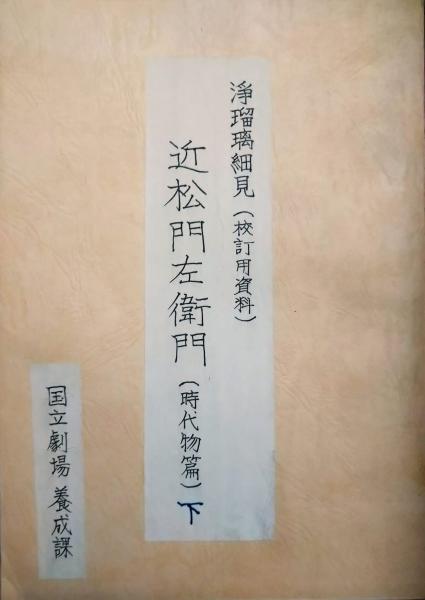 浄瑠璃細見（校訂用資料）
近松門左衛門（時代物篇）下
国立劇場 養成課